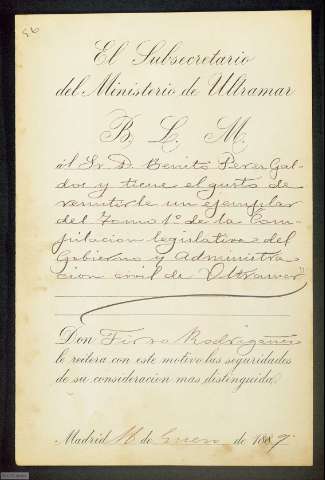 El Subsecretario
del Ministerio de Ultramar
B. L. M.
al Sr. D. Benito Perez Gal-
dos y tiene el gusto de
remitirle un ejemplar
del Tomo 1º de la Com-
pilacion legislativa del
Gobierno y Administra-
cion civil de Ultramar"
Don Tirso Rodrigañez
le reitera con este motivo las seguridades
de su consideracion mas distinguida.
Madrid de Enero de 1887.